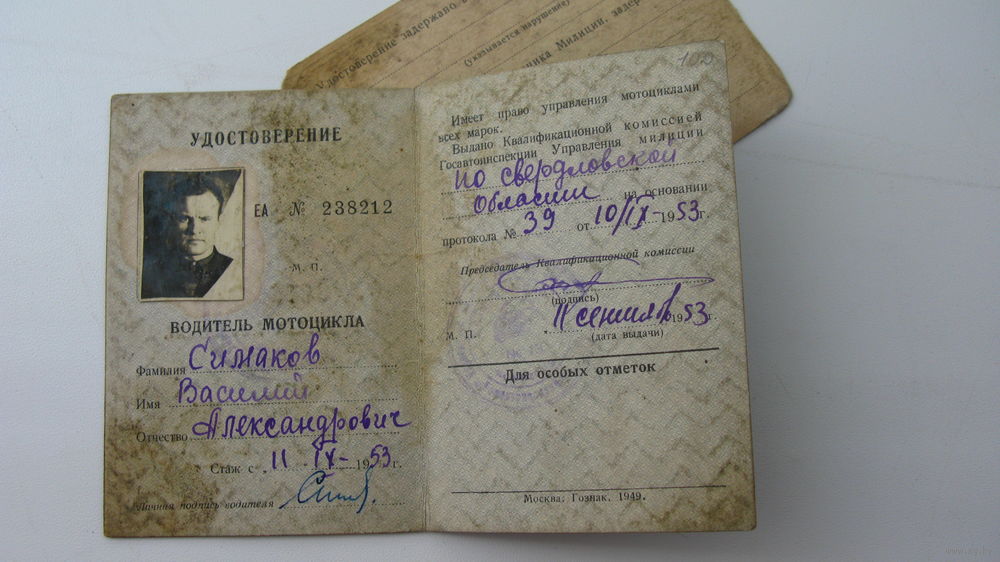 Удостоверение задержано в
(указывается нарушение)
ника Милиции, задер
100
УДОСТОВЕРЕНИЕ
ЕА № 238212
М. П.
ВОДИТЕЛЬ МОТОЦИКЛА
Фамилия Симаков
Имя Василий
Отчество Александрович
Стаж с „11 IX- 1953г.
Личная подпись водителя
Имеет право управления мотоциклами
всех марок.
Выдано Квалификационной комиссией
Госавтоинспекции Управления милиции
по свердловской
области на основании
протокола № 39 от 10/IX- 1953г.
Председатель Квалификационной комиссии
(подпись)
М. П. 11 сентября 1953г.
(дата выдачи)
Для особых отметок
Москва. Гознак. 1949.
www.ay.by